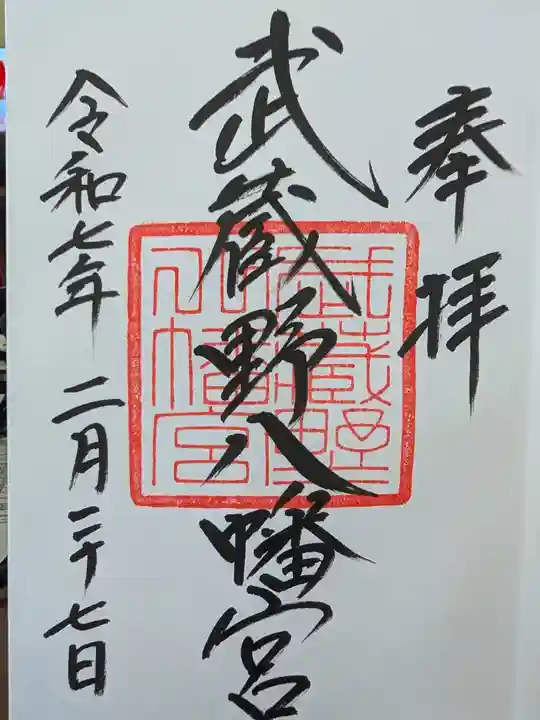 奉拝
武蔵野八幡宮
武蔵野
八幡宮
令和七年 二月二十七日